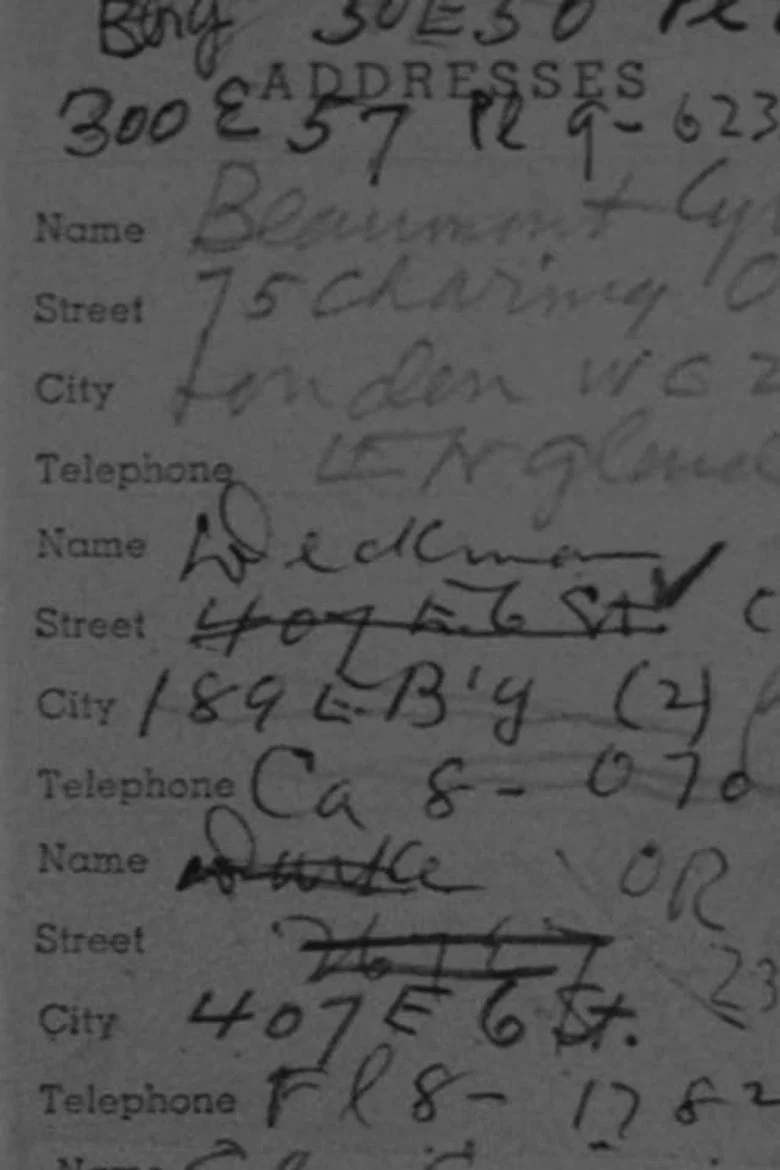 30E50 Pl
ADDRESSES
300 E 57 Pl 9-623
Name Beaumont
Street 75 Charing
City London WC2
Telephone England
Name Dickman
Street 407 E 6 St
City 189 E B'y (2)
Telephone Ca 8-070
Name OR
Street
23
City 407 E 6 St.
Telephone Fl 8-1782
Name